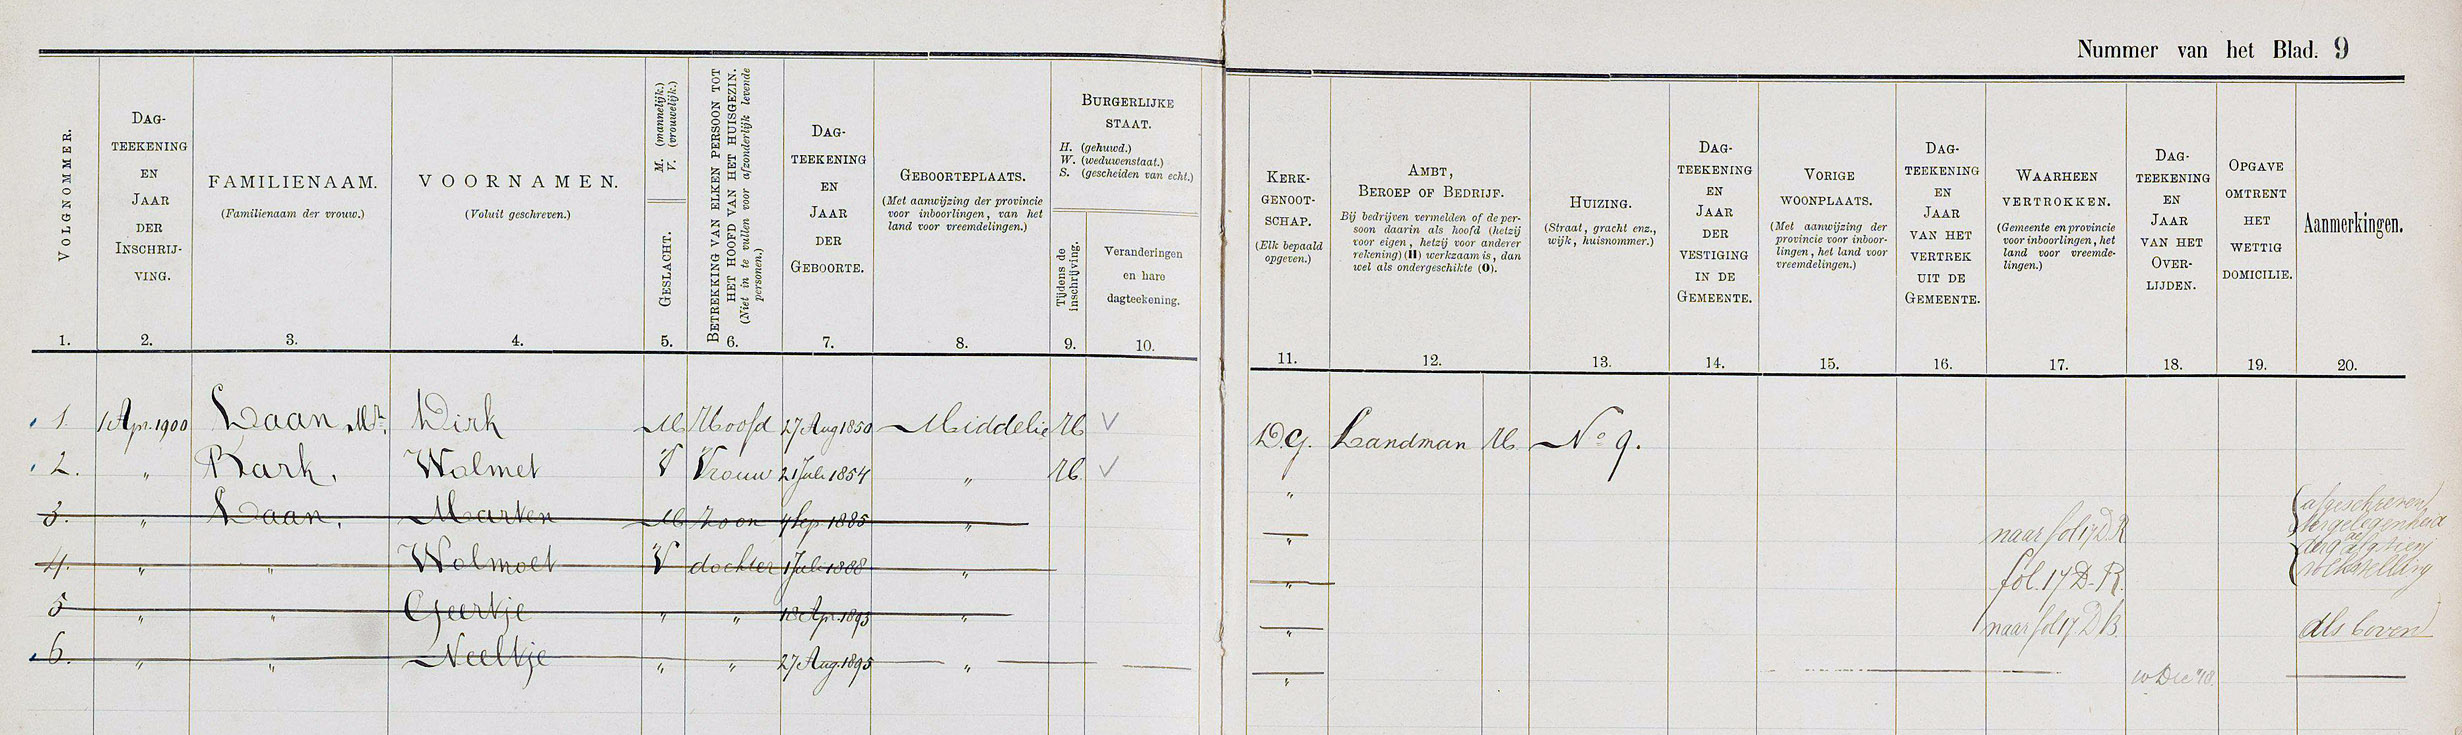 Nummer van het Blad. 9
VOLGNOMMER.
DAG-
TEEKENING
EN
JAAR
DER
INSCHRIJ-
VING.
FAMILIENAAM.
(Familienaam der vrouw.)
VOORNAMEN.
(Voluit geschreven.)
M. (mannelijk.)
V. (vrouwelijk.)
GESLACHT.
BETREKKING VAN ELKEN PERSOON TOT
HET HOOFD VAN HET HUISGEZIN.
(Niet in te vullen voor afzonderlijk levende
personen.)
DAG-
TEEKENING
EN
JAAR
DER
GEBOORTE.
GEBOORTEPLAATS.
(Met aanwijzing der provincie
voor inboorlingen, van het
land voor vreemdelingen.)
BURGERLIJKE
STAAT.
H. (gehuwd.)
W. (weduwenstaat.)
S. (gescheiden van echt.)
Tijdens de
inschrijving.
Veranderingen
en hare
dagteekening.
KERK-
GENOOT-
SCHAP.
(Elk bepaald
opgeven.)
AMBT,
BEROEP OF BEDRIJF.
Bij bedrijven vermelden of de per-
soon daarin als hoofd (hetzij
voor eigen, hetzij voor anderer
rekening) (H) werkzaam is, dan
wel als ondergeschikte (O).
HUIZING.
(Straat, gracht enz.,
wijk, huisnommer.)
DAG-
TEEKENING
EN
JAAR
DER
VESTIGING
IN DE
GEMEENTE.
VORIGE
WOONPLAATS.
(Met aanwijzing der
provincie voor inboor-
lingen, het land voor
vreemdelingen.)
DAG-
TEEKENING
EN
JAAR
VAN HET
VERTREK
UIT DE
GEMEENTE.
WAARHEEN
VERTROKKEN.
(Gemeente en provincie
voor inboorlingen, het
land voor vreemde-
lingen.)
DAG-
TEEKENING
EN
JAAR
VAN HET
OVER-
LIJDEN.
OPGAVE
OMTRENT
HET
WETTIG
DOMICILIE.
Aanmerkingen.
1. 2. 3. 4. 5. 6. 7. 8. 9. 10. 11. 12. 13. 14. 15. 16. 17. 18. 19. 20.
1. 1 Apr. 1900 Laan Mz. Dirk M Hoofd 27 Aug 1850 Middelie H V D.G. Landman H No 9.
2. " Bark, Wolmet V Vrouw 21 Juli 1854 " H V "
3. " Laan, Marten M Zoon 4 Sep. 1885 " " naar fol 17 D.R afgeschreven
4. " " Wolmoet V dochter 1 Juli 1888 " " fol. 17 D-R. volkstelling
5 " " Geertje " " 18 Apr. 1893 " " naar fol 17 D B. Als boven
6. " " Neeltje " " 27 Aug. 1895 " " 10 Dec '10.